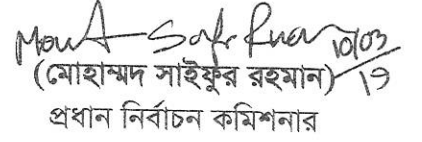 10/03
(মোহাম্মদ সাইফুর রহমান) 19
প্রধান নির্বাচন কমিশনার